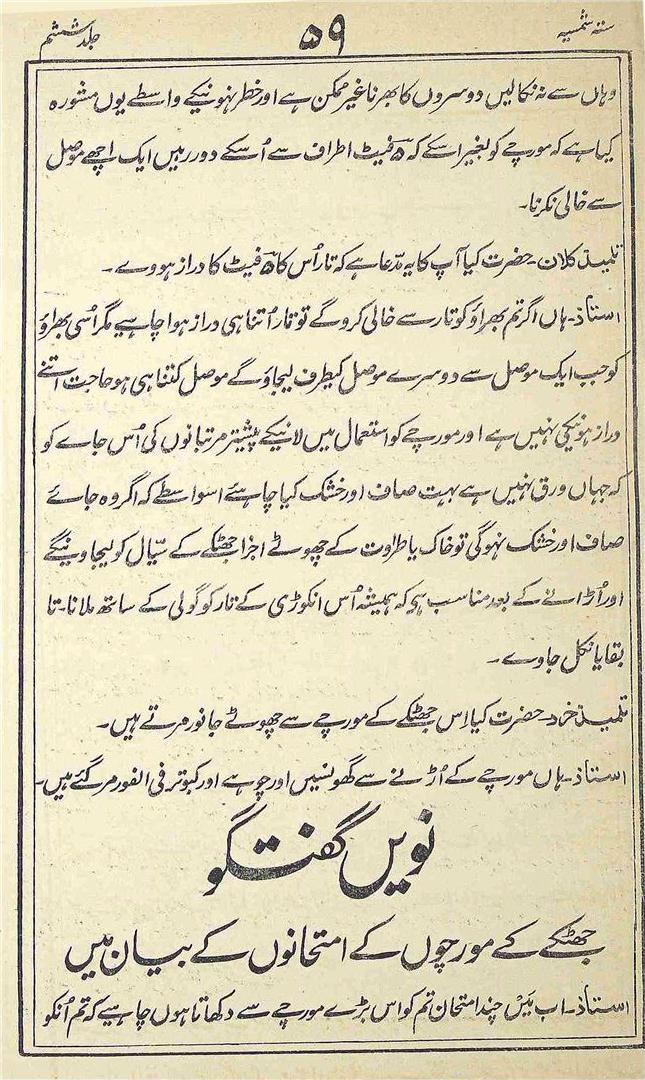 ستہ شمسیہ
۵۹
جلد ششم
وہاں سے نہ نکالیں دوسروں کا بھرنا غیر ممکن ہے اور خطر نہونیکے واسطے یوں مشورہ
کیا ہے کہ مورچے کو بغیر اسکے کہ ۵ فیٹ اطراف سے اُسکے دور رہیں ایک اچھے موصل
سے خالی نکرنا۔
تلمیذ کلان۔ حضرت کیا آپ کا یہ مدّعا ہے کہ تار اُس کا ۵ فیٹ کا دراز ہووے۔
استاذ۔ ہاں اگر تم بھراؤ کو تار سے خالی کروگے تو تار اُتنا ہی دراز ہوا چاہیے مگر اُسی بھراؤ
کو جب ایک موصل سے دوسرے موصل کیطرف لیجاؤگے موصل کتنا ہی ہو حاجت اتنے
دراز ہونیکی نہیں ہے اور مورچے کو استعمال میں لانیکے پیشتر مرتبانوں کی اُس جاے کو
کہ جہاں ورق نہیں ہے بہت صاف اور خشک کیا چاہئے اسواسطے کہ اگر وہ جائے
صاف اور خشک نہوگی تو خاک یا طراوت کے چھوٹے اجزا جھٹکے کے سیّال کو لیجاوینگے
اور اُڑانے کے بعد مناسب ہے کہ ہمیشہ اُس انکوڑی کے تار کو گولی کے ساتھ ملانا۔ تا
بقایا نکل جاوے۔
تلمیذ خرد۔ حضرت کیا اِس جھٹکے کے مورچے سے چھوٹے جانور مرتے ہیں۔
استاذ۔ ہاں مورچے کے اُڑنے سے گھونسیں اور چوہے اور کبوتر فی الفور مر گئے ہیں۔
نویں گفتگو
جھٹکے کے مورچوں کے امتحانوں کے بیان میں
استاذ۔ اب میں چند امتحان تم کو اس بڑے مورچے سے دکھاتا ہوں چاہیے کہ تم اُنکو